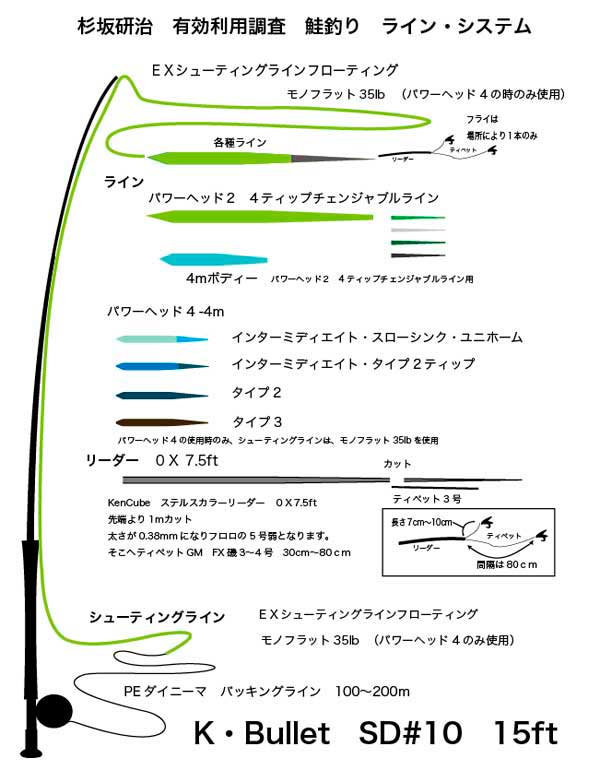 杉坂研治　有効利用調査　鮭釣り　ライン・システム
ＥＸシューティングラインフローティング
モノフラット35lb　（パワーヘッド４の時のみ使用）
フライは
場所により１本のみ
各種ライン
ティペット
リーダー
ライン
パワーヘッド２　４ティップチェンジャブルライン
4mボディー　パワーヘッド２　４ティップチェンジャブルライン用
パワーヘッド４-4m
インターミディエイト・スローシンク・ユニホーム
インターミディエイト・タイプ２ティップ
タイプ２
タイプ３
パワーヘッド４の使用時のみ、シューティングラインは、モノフラット35lbを使用
リーダー　０Ｘ 7.5ft
カット
ティペット３号
KenCube　ステルスカラーリーダー　０Ｘ7.5ft
先端より１mカット
太さが0.38mmになりフロロの５号弱となります。
そこへティペットGM　FX磯３〜４号　30cm〜80ｃｍ
長さ7cm〜10cm
ティペット
リーダー
間隔は80ｃｍ
シューティングライン　ＥＸシューティングラインフローティング
モノフラット35lb　（パワーヘッド４のみ使用）
PEダイニーマ　バッキングライン　100〜200m
K・Bullet　SD#10　15ft